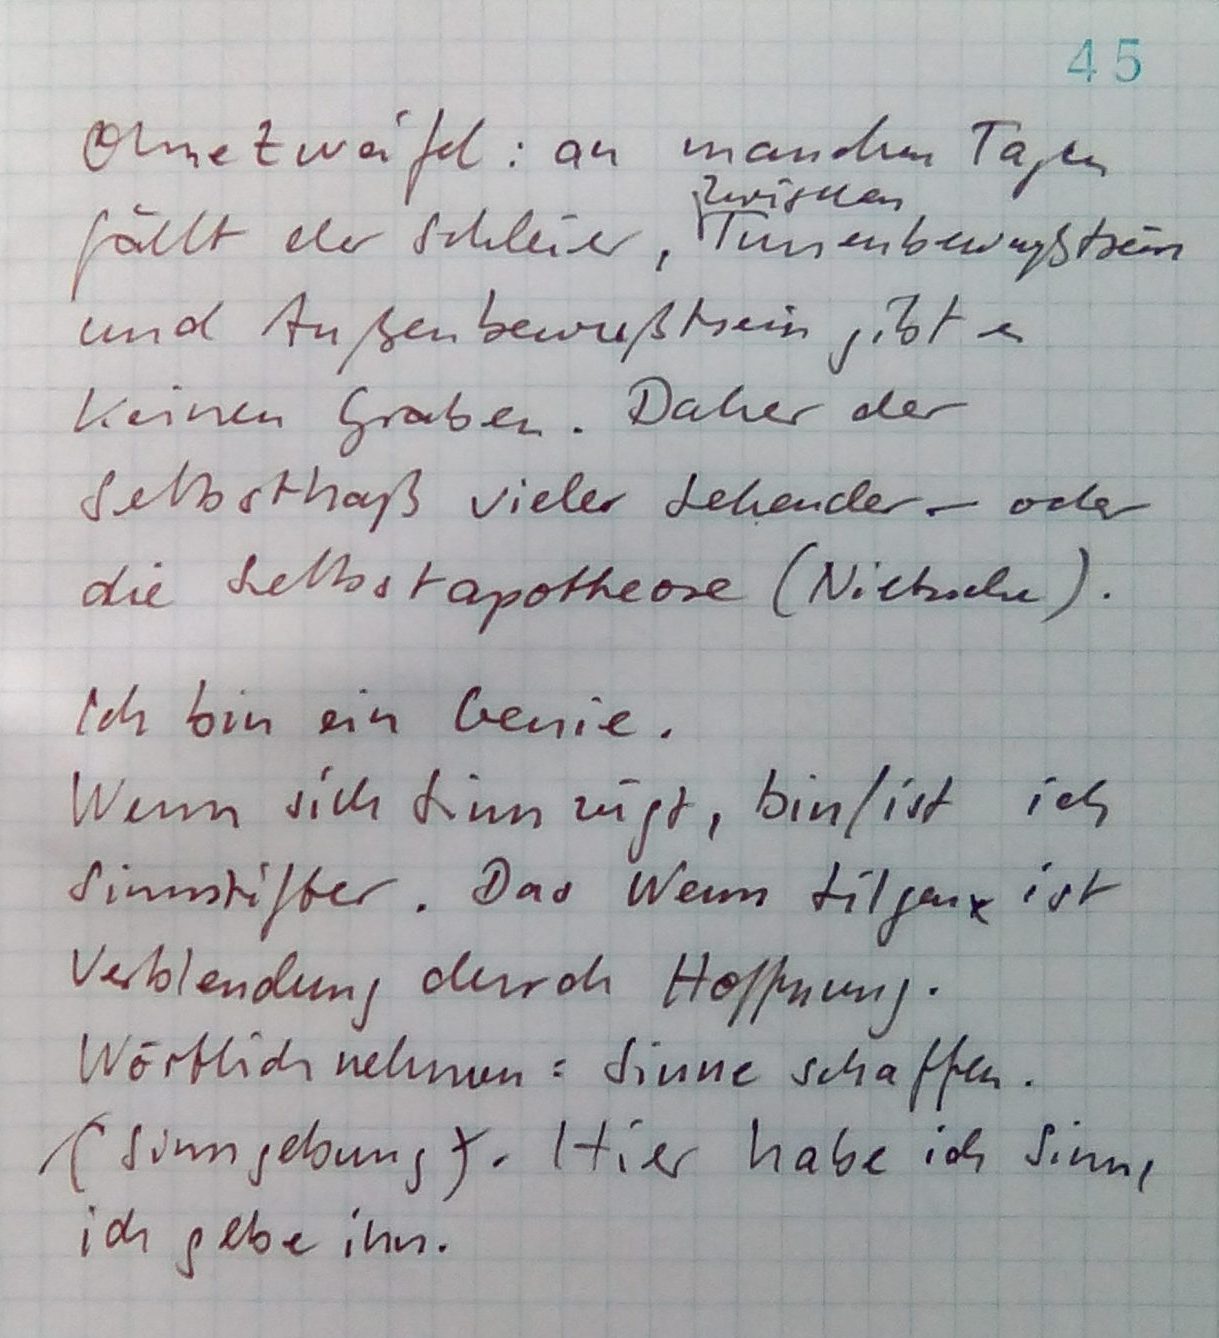 45
Ohne Zweifel: an manchen Tagen
fällt der Schleier, zwischen Innenbewußtsein
und Außenbewußtsein gibt es
keinen Graben. Daher der
Selbsthaß vieler Sehender – oder
die Selbstapotheose (Nietzsche).
Ich bin ein Genie.
Wenn sich Sinn zeigt, bin/ist ich
Sinnstifter. Das Wenn tilgen ist
Verblendung durch Hoffnung.
Wörtlich nehmen: Sinne schaffen.
(Sinngebung). Hier habe ich Sinn,
ich gebe ihn.